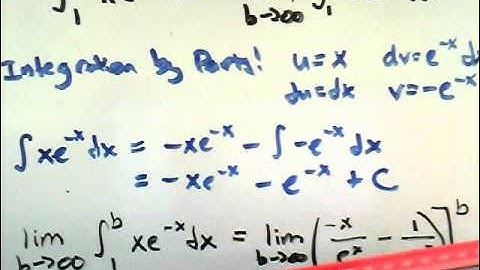 ∫₁ b→∞ ∫₁
Integration by Parts! u=x dv=e^-x dx
du=dx v=-e^-x
∫xe^-x dx = -xe^-x - ∫-e^-x dx
= -xe^-x - e^-x + C
lim b→∞ ∫₁^b xe^-x dx = lim b→∞ (-x/e^x - 1/
)]^b